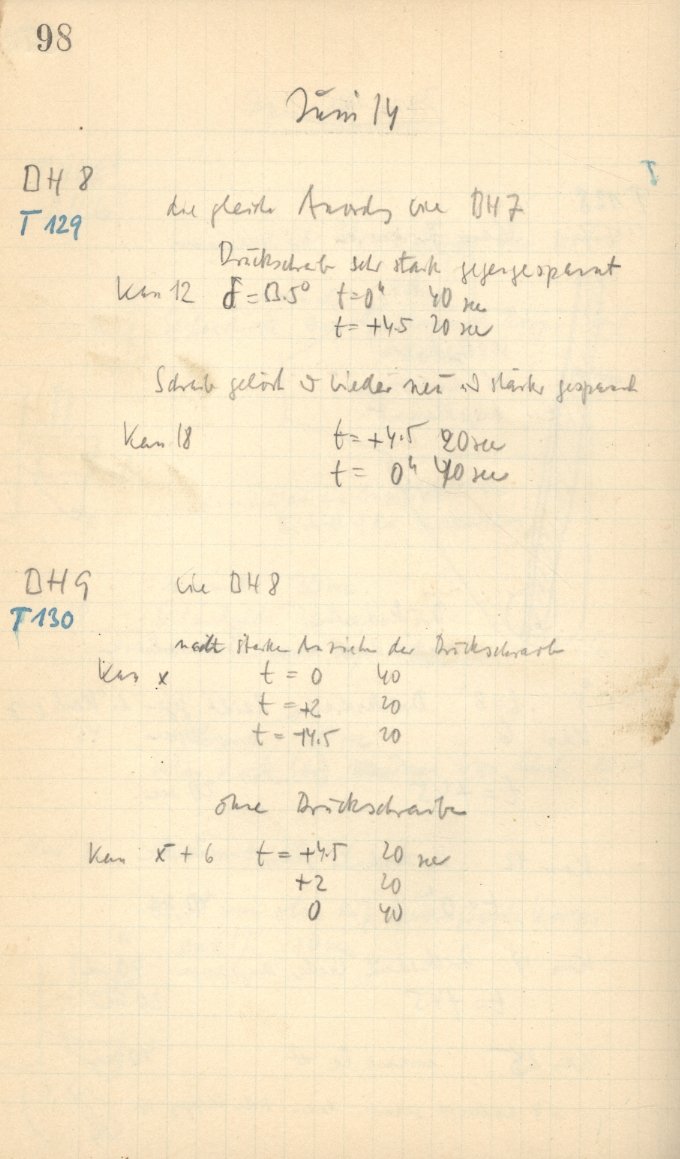 98
Juni 14
DH 8
T 129
die gleiche Anordg wie DH 7
Druckschraube sehr stark gegengespannt
Kan 12 δ = 13.5° t = 0ʰ 40 sec
t = +4.5 20 sec
Schraube gelöst u wieder neu u stärker gespannt
Kan 18 t = +4.5 20 sec
t = 0ʰ 40 sec
DH 9 wie DH 8
T 130
nach starkem Anziehen der Druckschraube
Kan x t = 0 40
t = +2 20
t = +4.5 20
ohne Druckschraube
Kan x + 6 t = +4.5 20 sec
+2 20
0 40